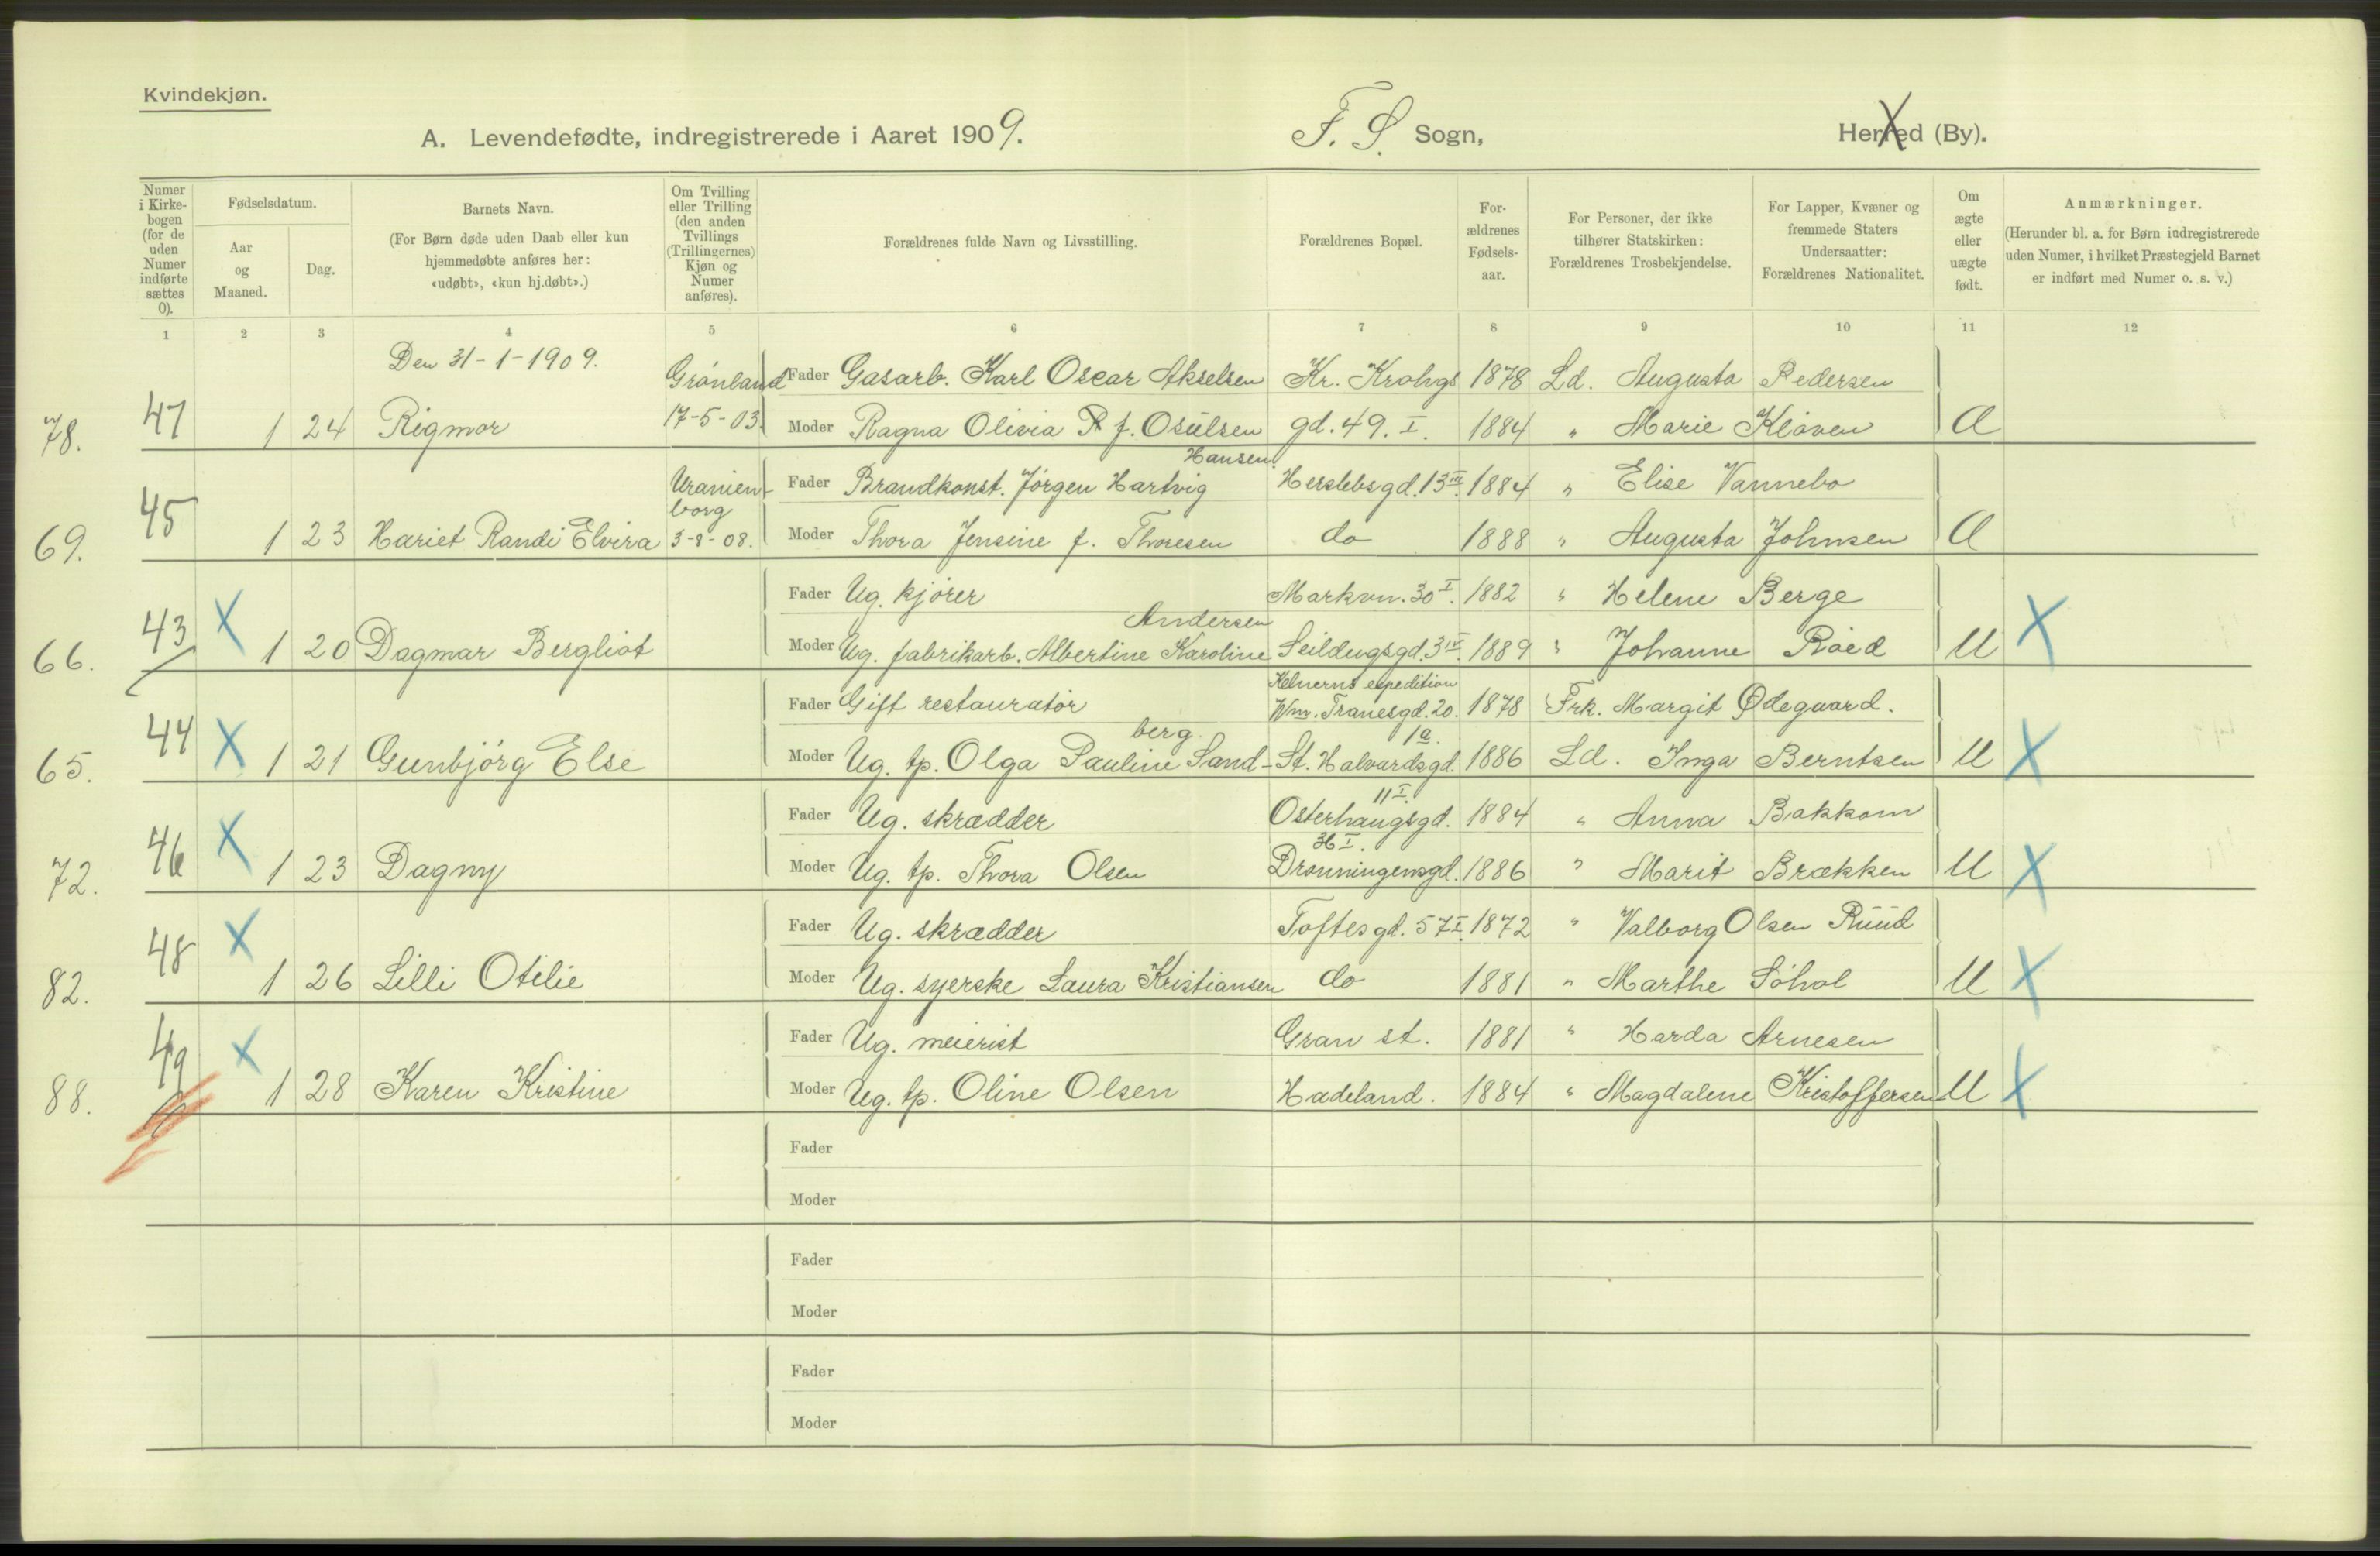 Kvindekjøn.
A. Levendefødte, indregistrerede i Aaret 1909. F. S. Sogn, Herred (By).
Numer i Kirkebogen (for de uden Numer indførte sættes 0).
Fødselsdatum.
Aar og Maaned.
Dag.
Barnets Navn.
(For Børn døde uden Daab eller kun hjemmedøbte anføres her: «udøbt», «kun hj.døbt».)
Om Tvilling eller Trilling (den anden Tvillings (Trillingernes) Kjøn og Numer anføres).
Forældrenes fulde Navn og Livsstilling.
Forældrenes Bopæl.
Forældrenes Fødselsaar.
For Personer, der ikke tilhører Statskirken: Forældrenes Trosbekjendelse.
For Lapper, Kvæner og fremmede Staters Undersaatter: Forældrenes Nationalitet.
Om ægte eller uægte født.
Anmærkninger.
(Herunder bl. a. for Børn indregistrerede uden Numer, i hvilket Præstegjeld Barnet er indført med Numer o. s. v.)
1 2 3 4 5 6 7 8 9 10 11 12
Den 31-1-1909.
Grønland Fader Gasarb. Karl Oscar Akselsen Kr. Krohgs 1878 Ld. Augusta Pedersen
78. 47 1 24 Rigmor 17-5-03. Moder Ragna Olivia f. Osulsen gd. 49. I. 1884 " Marie Kløven Æ
Hansen.
Uranienborg Fader Brandkonst. Jørgen Hartvig Herslebsgd. 13 III. 1884 " Elise Vannebo
69. 45 1 23 Hariet Randi Elvira 3-8-08. Moder Thora Jensine f. Thoresen do 1888 " Augusta Johnsen Æ
Fader Ug. kjører Markvn. 30 I. 1882 " Helene Berge
Andersen
66. 43 X 1 20 Dagmar Bergliot Moder Ug. fabrikarb. Albertine Karoline Seildugsgd. 3 IV. 1889 " Johanne Røed U X
Kelnerns expedition
Fader Gift restauratør Wm. Tranesgd. 20. 1878 Frk. Margit Ødegaard.
berg. 1a.
65. 44 X 1 21 Gunbjørg Else Moder Ug. tp. Olga Pauline Sand- St. Halvardsgd. 1886 Ld. Inga Berntsen U X
11 I.
Fader Ug. skrædder Osterhaugsgd. 1884 " Anna Bakkom
I.
72. 46 X 1 23 Dagny Moder Ug. tp. Thora Olsen Dronningensgd. 1886 " Marit Brækken U X
Fader Ug. skrædder Toftesgd. 57 I. 1872 " Valborg Olsen Ruud
82. 48 X 1 26 Lilli Otilie Moder Ug. syerske Laura Kristiansen do 1881 " Marthe Søhol U X
Fader Ug. meierist Gran st. 1881 " Harda Arnesen
88. 49 X 1 28 Karen Kristine Moder Ug. tp. Oline Olsen Hadeland. 1884 " Magdalene Kristoffersen U X
Fader
Moder
Fader
Moder
Fader
Moder